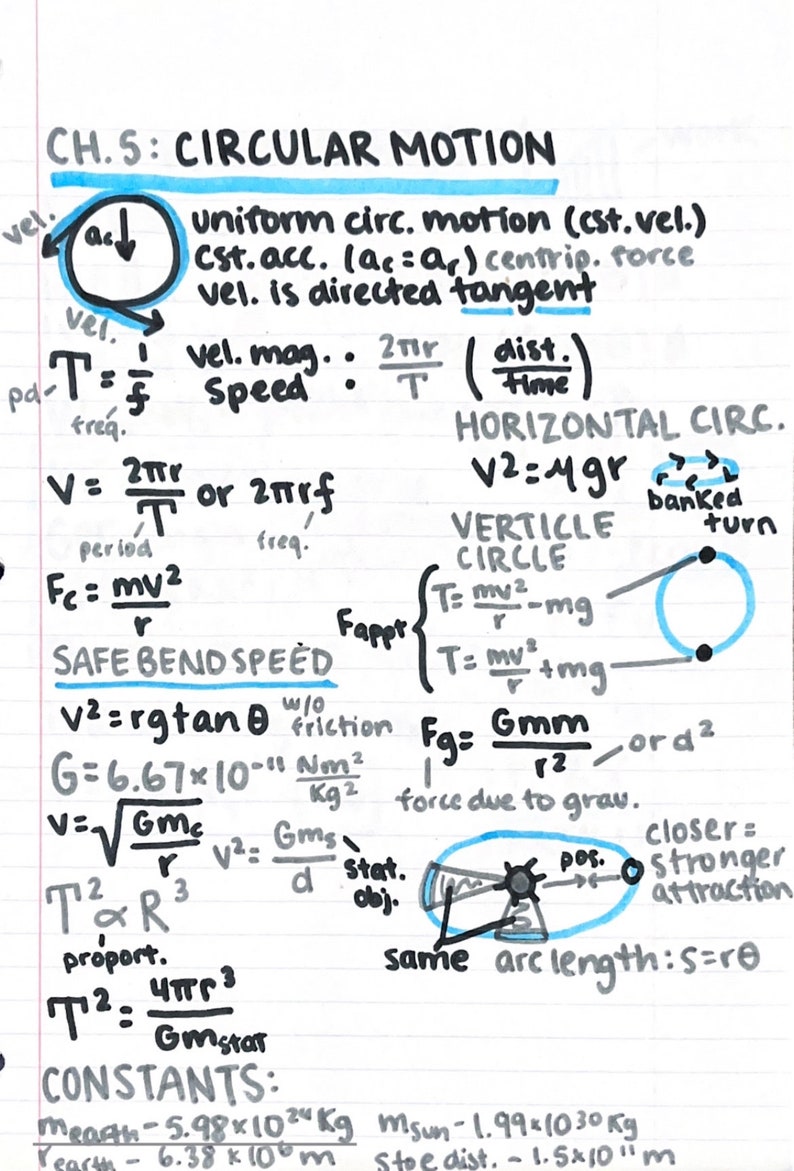 CH. 5: CIRCULAR MOTION
vel.
ac↓
uniform circ. motion (cst. vel.)
cst. acc. (ac = ar) centrip. force
vel. is directed tangent
vel.
T = 1/f
pd
freq.
vel. mag. : 2πr/T (dist./time)
speed
HORIZONTAL CIRC.
v² = μgr
banked
turn
V = 2πr/T or 2πrf
period
freq.
VERTICLE
CIRCLE
Fc = mv²/r
Fappt { T = mv²/r - mg
T = mv²/r + mg
SAFE BEND SPEED
v² = rg tan θ w/o friction
Fg = Gmm/r² or d²
force due to grav.
G = 6.67 × 10⁻¹¹ Nm²/Kg²
v = √Gmc/r
v² = Gms/d
stat.
obj.
pos.
closer =
stronger
attraction
T² ∝ R³
proport.
same
arc length: s = rθ
T² = 4πr³/Gmstat
CONSTANTS:
mearth - 5.98 × 10²⁴ Kg
msun - 1.99 × 10³⁰ Kg
rearth - 6.38 × 10⁶ m
s to e dist. - 1.5 × 10¹¹ m